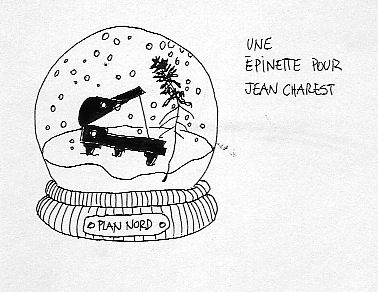 UNE
ÉPINETTE POUR
JEAN CHAREST
PLAN NORD